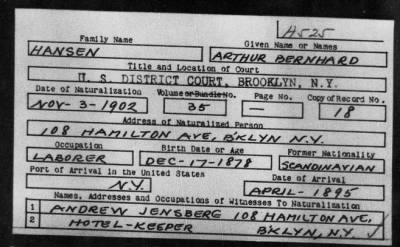 H525
Family Name Given Name or Names
HANSEN ARTHUR BERNHARD
Title and Location of Court
U. S. DISTRICT COURT, BROOKLYN, N.Y.
Date of Naturalization Volume or Bundle No. Page No. Copy of Record No.
NOV-3-1902 35 — 18
Address of Naturalized Person
108 HAMILTON AVE, B'KLYN N.Y.
Occupation Birth Date or Age Former Nationality
LABORER DEC-17-1878 SCANDINAVIAN
Port of Arrival in the United States Date of Arrival
N.Y. APRIL-1895
Names, Addresses and Occupations of Witnesses To Naturalization
1 ANDREW JENSBERG 108 HAMILTON AVE,
2 HOTEL-KEEPER B'KLYN, N.Y. ✓